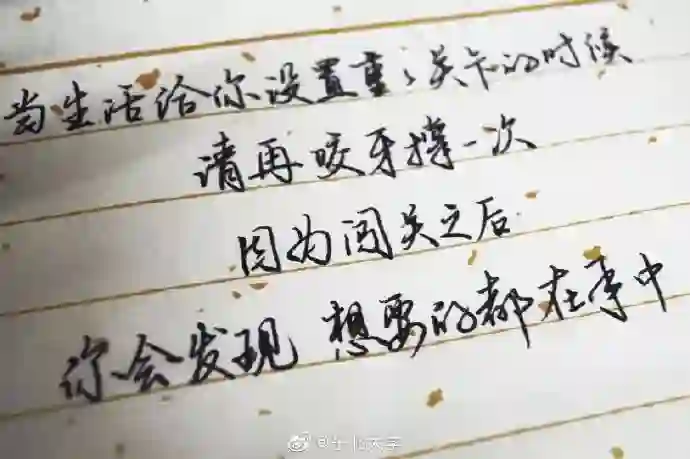 当生活给你设置重重关卡的时候
请再咬牙撑一次
因为闯关之后
你会发现 想要的都在手中